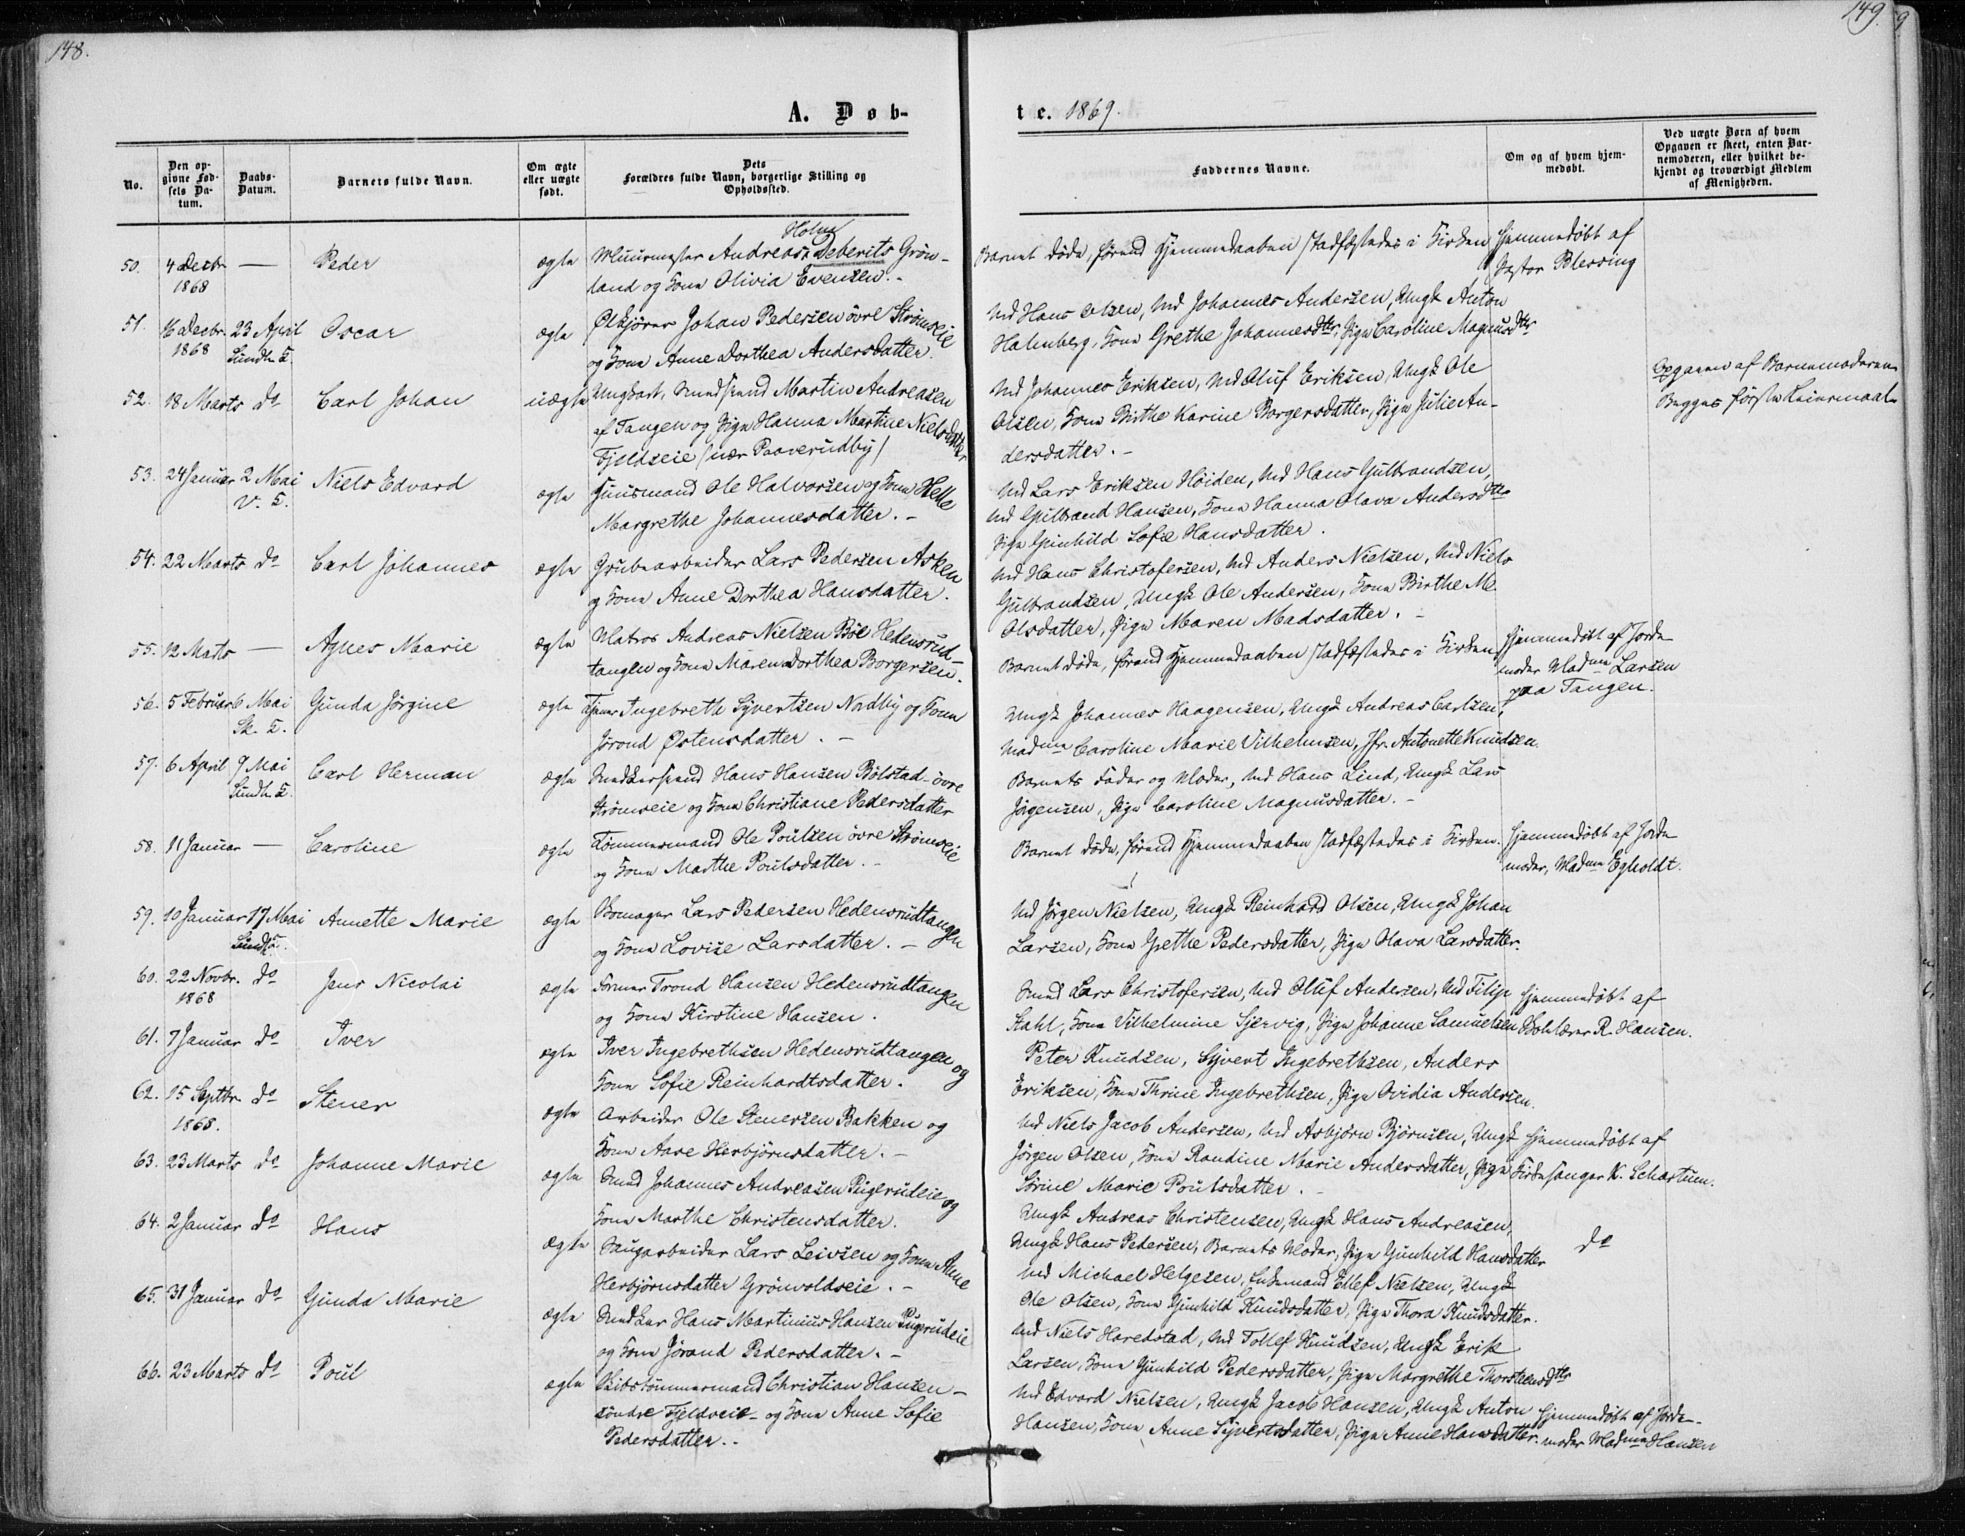 148.
149.
A. Døb-
te. 1869.
No.
Den op-
givne Fød-
sels Da-
tum.
Daabs-
Datum.
Barnets fulde Navn.
Om ægte
eller uægte
født.
Dets
Forældres fulde Navn, borgerlige Stilling og
Opholdssted.
Faddernes Navne.
Om og af hvem hjem-
medøbt.
Ved uægte Børn af hvem
Opgaven er skeet, enten Bar-
nemoderen, eller hvilket be-
kjendt og troværdigt Medlem
af Menigheden.
50. 4 Decbr — Peder ægte Muurmester Andreas Deberits Grön-
Holm
1868 land og Kone Olivia Evensen. -
Barnet döde, förend Hjemmedaaben stadfæstedes i Kirken
Hjemmedöbt af
Pastor Blessing
51. 16 Decbr. 23 April Oscar ægte Ølkjörer Johan Pedersen övre Strömseie
1868 Sundh. K. og Kone Anne Dorthea Andersdatter.
Md Hans Olsen, Md Johannes Andersen, Ungk Anton
Halmberg, Kone Grethe Johannesdttr, Pige Caroline Magnusdttr
52. 18 Marts do Carl Johan uægte Ungkarl, Smedsvend Martin Andreasen
af Tangen og Pige Hanna Martine Nielsdatter
Fjeldseie (nær Paaverudby)
Md Johannes Eriksen, Md Oluf Eriksen, Ungk Ole
Olsen, Kone Birthe Karine Borgersdatter, Pige Julie An-
dersdatter. -
Opgaven af Barnemoderen
Begges förste Leiermaal
53. 24 Januar 2 Mai Niels Edvard ægte Huusmand Ole Halvorsen og Kone Helle
V. K. Margrethe Johannesdatter. -
Md Lars Eriksen Höiden, Md Hans Gulbrandsen,
Md Gulbrand Hansen, Kone Hanna Olava Andersdttr
Pige Gunhild Sofie Hansdatter.
54. 22 Marts do Carl Johannes ægte Grubearbeider Lars Pedersen Asken
og Kone Anne Dorthea Hansdatter.
Md Hans Christofersen, Md Anders Nielsen, Md Niels
Gulbrandsen, Ungk Ole Andersen, Kone Birthe M.
Olsdatter, Pige Maren Madsdatter. -
55. 12 Marts — Agnes Marie ægte Matros Andreas Nielsen Böe Hedensrud-
tangen og Kone Maren Dorthea Borgersen.
Barnet döde, förend Hjemmedaaben stadfæstedes i Kirken
Hjemmedöbt af Jorde-
moder Madme Larsen
paa Tangen.
56. 5 Februar 6 Mai Gunda Jörgine ægte Tjener Ingebreth Syvertsen Nordby og Kone
Sk. K. Jörond Östensdatter. -
Ungk Johannes Haagensen, Ungk Andreas Carlsen,
Madme Caroline Marie Vilhelmsen, Jfr. Antonette Knudsen.
57. 6 April 9 Mai Carl Herman ægte Snedkersvend Hans Hansen Bölstad - övre
Sundh. K. Strömseie og Kone Christiane Pedersdatter
Barnets Fader og Moder, Md Hans Lind, Ungk Lars
Jörgensen, Pige Caroline Magnusdatter. -
58. 11 Januar — Caroline ægte Tömmermand Ole Poulsen övre Strömseie
og Kone Marthe Poulsdatter. -
Barnet döde, förend Hjemmedaaben stadfæstedes i Kirken.
Hjemmedöbt af Jorde-
moder, Madme Egholdt.
59. 10 Januar 17 Mai Annette Marie ægte Skomager Lars Pedersen Hedensrudtangen
Sundh. K. og Kone Lovise Larsdatter. -
Md Jörgen Nielsen, Ungk Reinhard Olsen, Ungk Johan
Larsen, Kone Grethe Pedersdatter, Pige Olava Larsdatter.
60. 22 Novbr. do Jens Nicolai ægte Former Trond Hansen Hedensrudtangen
1868 og Kone Kirstine Hansen.
Smed Lars Christofersen, Md Oluf Andersen, Md Filip
Stahl, Kone Vilhelmine Sjervig, Pige Johanne Samuelsen
Hjemmedöbt af
Skolelærer R. Hansen.
61. 7 Januar do Iver ægte Iver Ingebrethsen Hedensrudtangen og
Kone Sofie Reinhardtsdatter.
Peter Knudsen, Syvert Ingebrethsen, Anders
Eriksen, Kone Thrine Ingebrethsen, Pige Ovidia Andersen.
62. 15 Septbr. do Stener ægte Arbeider Ole Stenersen Bakken og
1868. Kone Aase Herbjörnsdatter. -
Md Niels Jacob Andersen, Md Asbjörn Björnsen, Ungk
Jörgen Olsen, Kone Randine Marie Andersdatter, Pige
Sörine Marie Poulsdatter. -
Hjemmedöbt af
Kirkesanger K. Schartum.
63. 23 Marts do Johanne Marie ægte Smed Johannes Andreasen Pugerudeie og
Kone Marthe Christensdatter.
Ungk Andreas Christensen, Ungk Hans Andreasen,
Ungk Hans Pedersen, Barnets Moder, Pige Gunhild Hansdatter
do
64. 2 Januar do Hans ægte Saugarbeider Lars Leivsen og Kone Anne
Herbjörnsdatter Grönvoldseie. -
Md Michael Helgesen, Enkemand Ellef Nielsen, Ungk
Ole Olsen, Kone Gunhild Knudsdatter, Pige Thora Knudsdatter.
65. 31 Januar do Gunda Marie ægte Snedker Hans Martinius Hansen Pugerudeie
og Kone Jörand Pedersdatter. -
Md Niels Haredstad, Md Tollef Knudsen, Ungk Erik
Larsen, Kone Gunhild Pedersdatter, Pige Margrethe Thorstensdttr
66. 23 Marts do Poul ægte Skibstömmermand Christian Hansen -
söndre Fjeldseie - og Kone Anne Sofie
Pedersdatter. -
Md Edvard Nielsen, Ungk Jacob Hansen, Ungk Anton
Hansen, Kone Anne Syvertsdatter, Pige Anne Hansdatter.
Hjemmedöbt af Jorde-
moder Madme Hansen